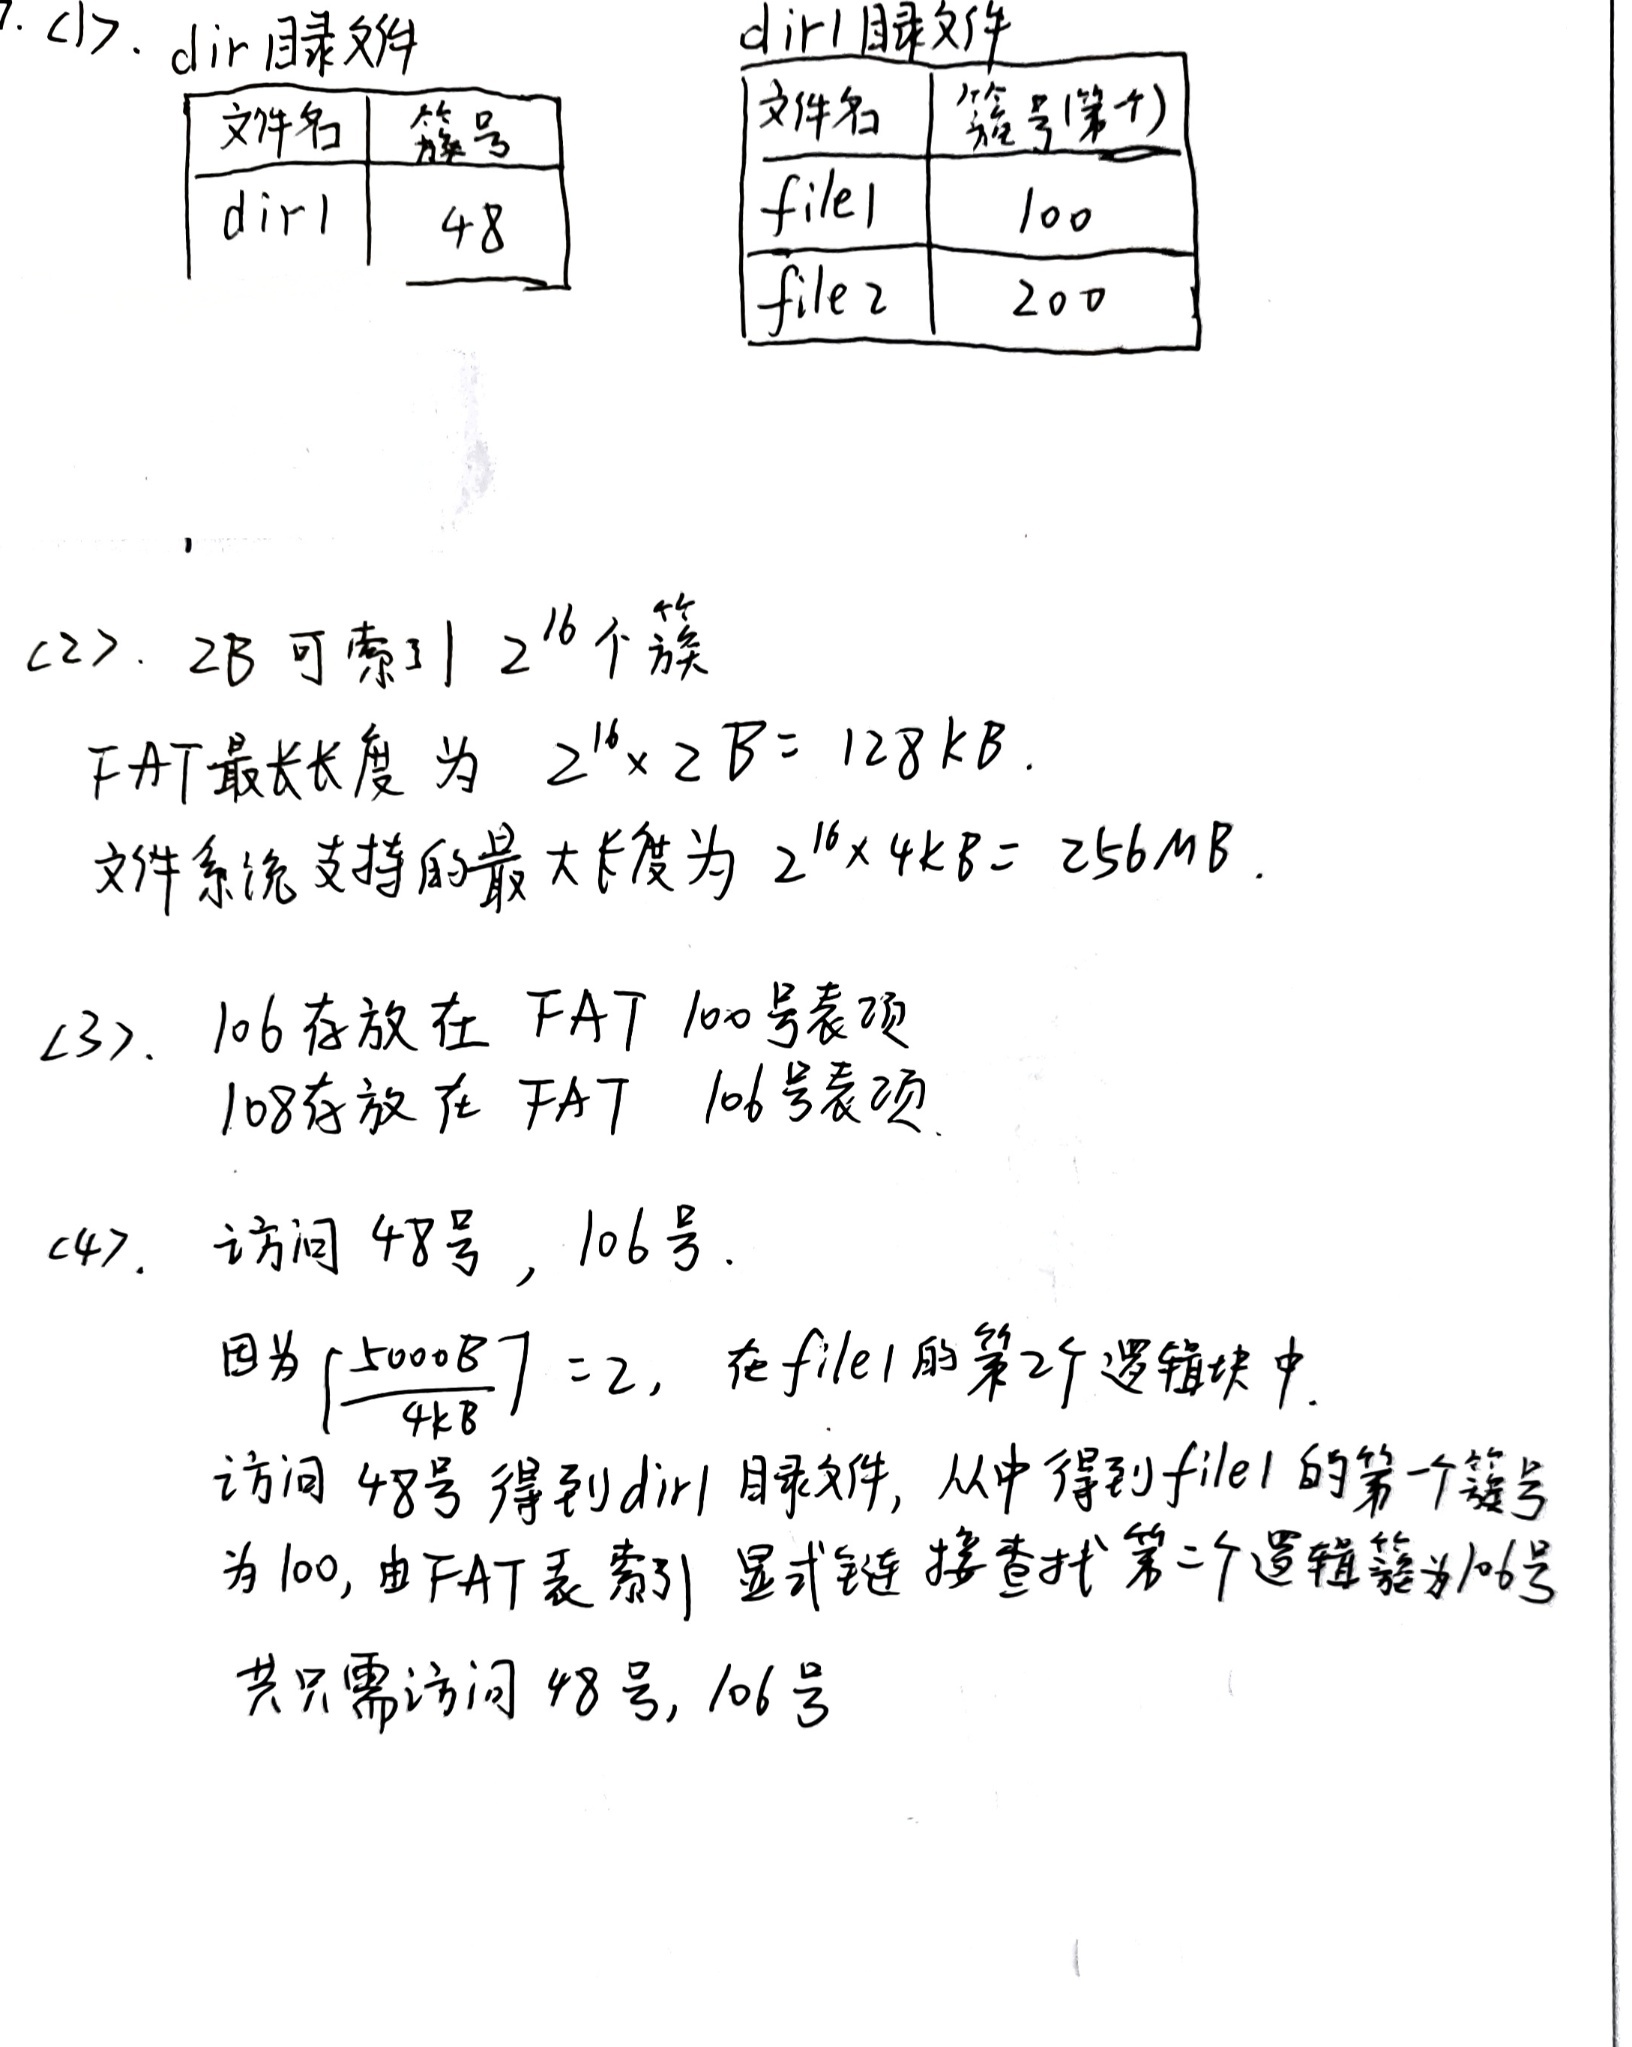 7. <1>. dir目录文件
文件名 簇号
dir1 48
dir1目录文件
文件名 簇号(第个)
file1 100
file2 200
<2>. 2B 可索引 2^16 个 簇
FAT最长长度 为 2^16 × 2 B = 128 kB.
文件系统支持的最大长度为 2^16 × 4kB = 256MB.
<3>. 106存放在 FAT 100号表项
108存放在 FAT 106号表项.
<4>. 访问 48号, 106号.
因为⌈5000B/4kB⌉ = 2, 在file1的第2个逻辑块中.
访问 48号 得到dir1 目录文件, 从中得到file1 的第一个簇号
为100, 由FAT表索引 显式链接查找第二个逻辑簇为106号
共只需访问 48号, 106号